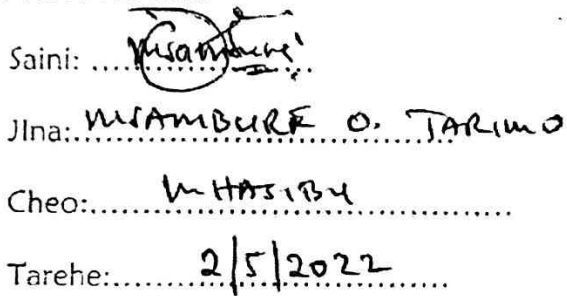 Saini: ........ Msambure
JIna: MSAMBURE O. TARIMO
Cheo:........ MHASIBU ........
Tarehe:........ 2/5/2022 ........